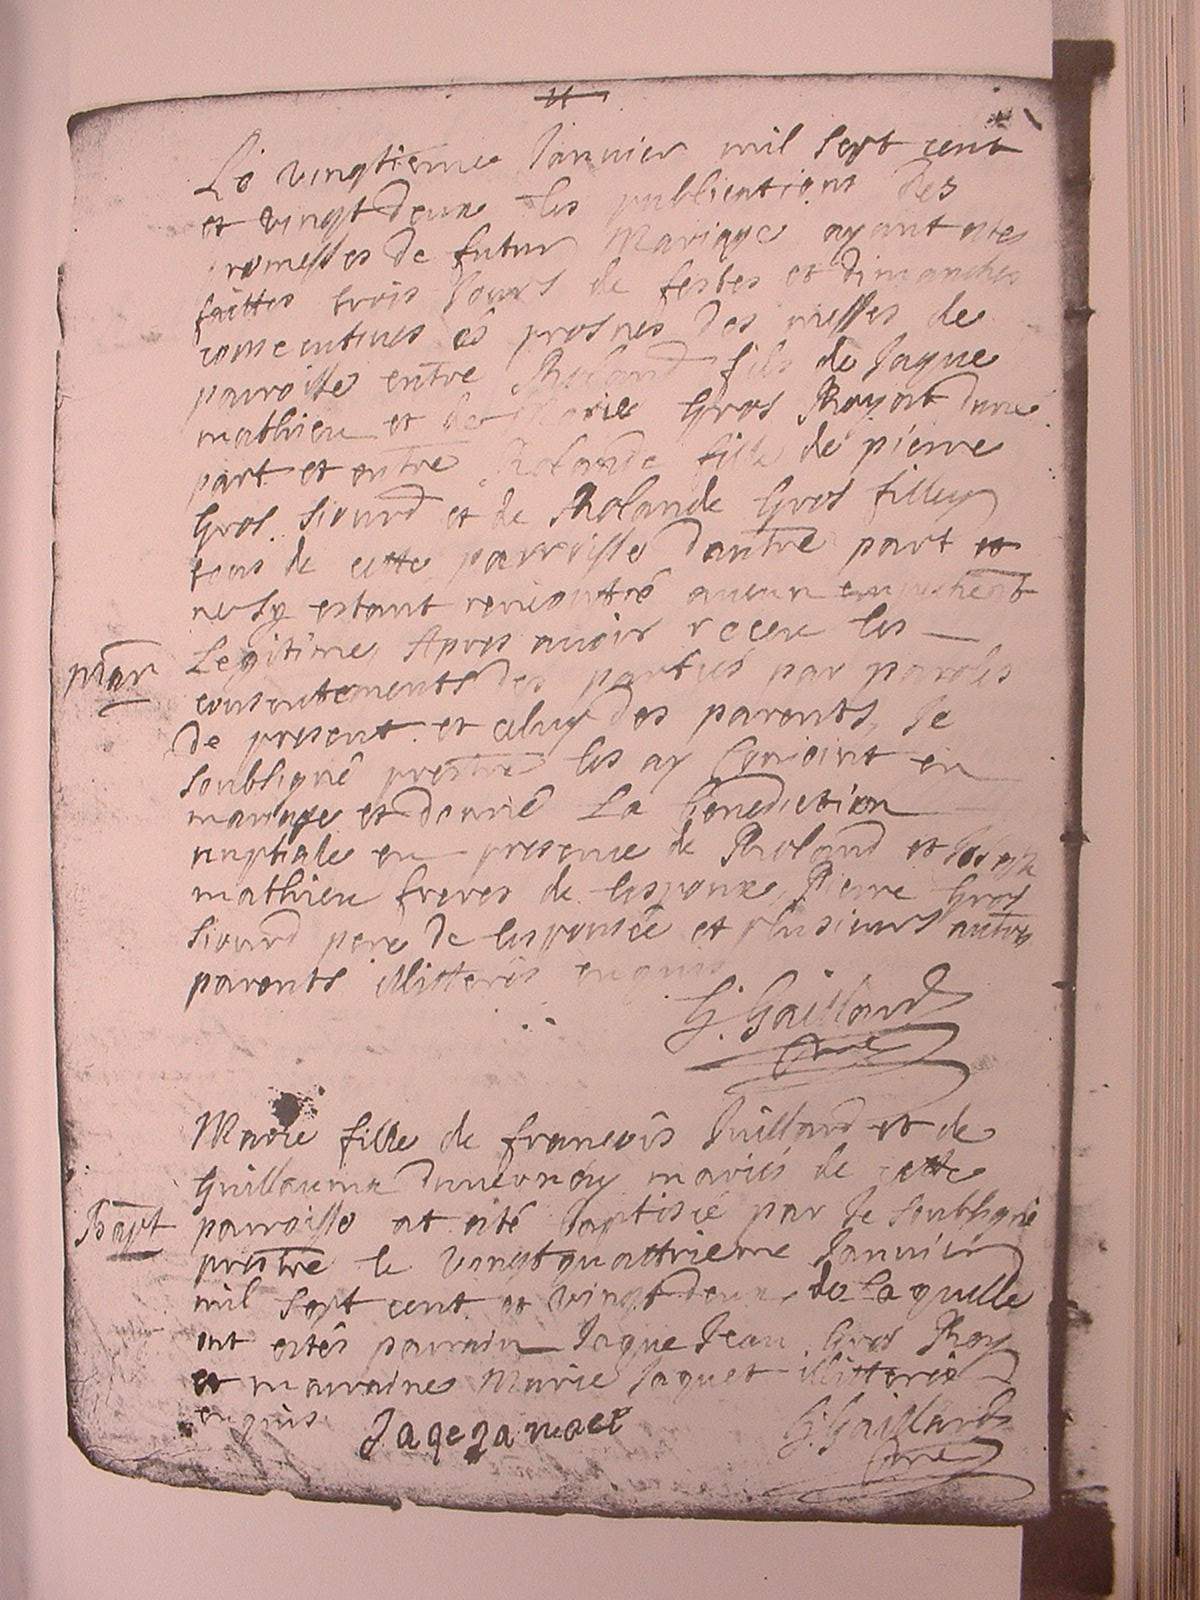 Le vingtieme Janvier mil sept cent
et vingt deux les publications des
romesses de futur Mariage ayant estes
faittes trois Jours de festes et dimanches
consecutives es prosnes des messes de
parroisse entre Roland fils de Jaque
mathieu et de Marie Gros Royat dune
part et entre Rolande fille de pierre
Gros Siourd et de Rolande Gros filley
tous de cette parroisse dautre part et
ne sy estant rencontré aucun empechemt
Legitime, Apres avoir receu les
Mar
consentements des parties par parolles
de present et celuy des parents, Je
soubsigné prestre les ay Conjoint en
mariage et donné La benediction
nuptiale en presence de Roland et Joseph
mathieu freres de lespoux, Pierre Gros
Siourd pere de lespousée et plusieurs autres
parents illitterés enquis
G. Gaillard
curé
Marie fille de francois Juillard et de
Guillauma duvernéy mariés de cette
Bapt
parroisse at eté baptisée par Je soubsigné
prestre le vingtquattrieme Janvier
mil sept cent et vingt deux, de Laquelle
ont estés parrain Jaque Jean Gros Roy
et marraine Marie Jaquet illitterée
enquis.
Jaqe
G. Gaillard
curé